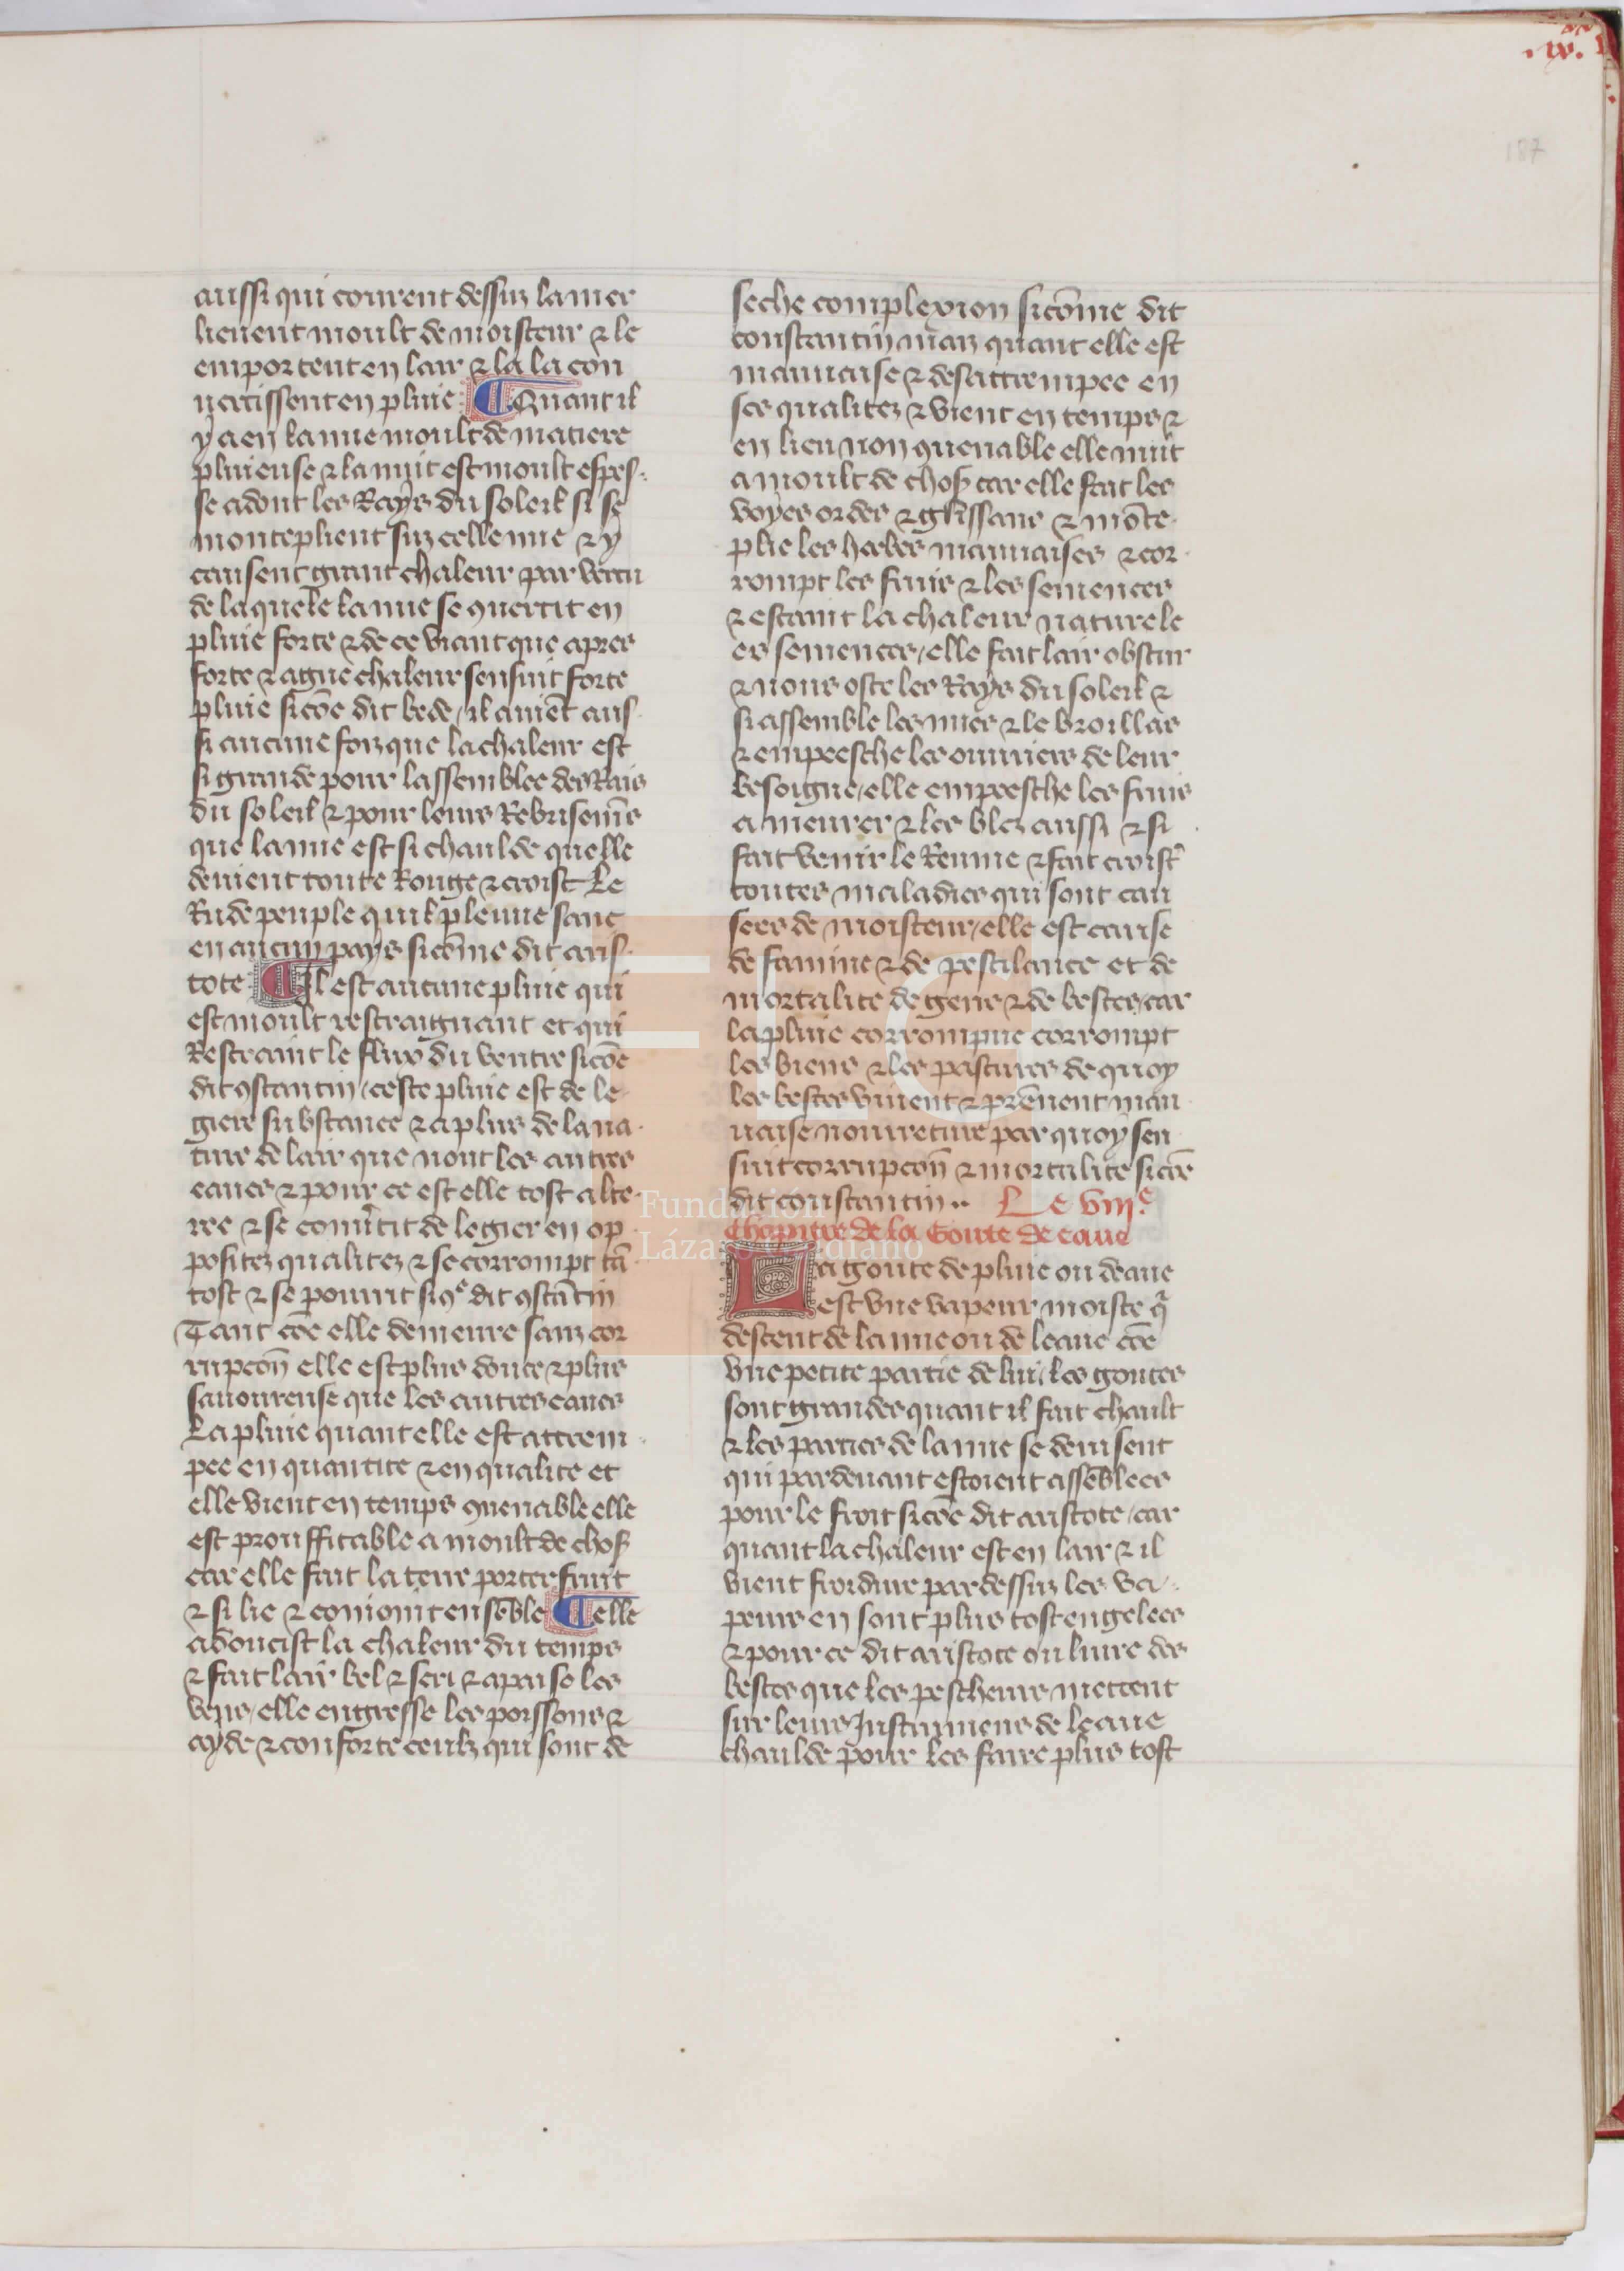 .xv.
187
aussi qui courent dessuz la mer
lieuent moult de moisteur ⁊ le
emportent en lair ⁊ la la con
uertissent en pluie ¶ Quant il
y a en la nue moult de matiere
pluieuse ⁊ la nuit est moult espes
se adont les Rays du soleil si se
monteplient suz celle nue ⁊ y
causent grant chaleur par vertu
de laquele la nue se ꝯuertit en
pluie forte ⁊ de ce viant que apres
forte ⁊ ague chaleur sensuit forte
pluie sicōe dit bede / il auiēt aus
si aucune foiz que la chaleur est
si grande pour lassemblee des Rais
du soleil ⁊ pour leurs Rebrisemēs
que la nue est si chaulde quelle
deuient toute Rouge ⁊ croist Le
Rude peuple quil pleuue sanc
en aucun pays sicōme dit aris
tote ¶ Il est aucune pluie qui
est moult restraignant et qui
Restraint le flux du ventre sicōe
dit ꝯstantin / ceste pluie est de le
giere substance ⁊ a plus de la na
ture de lair que nont les autres
eaues ⁊ pour ce est elle tost alte
ree ⁊ se conu̾tit de legier en op
positez qualitez ⁊ se corrompt tā
tost ⁊ se pourrit siꝯᵉ dit ꝯstātin
Tant cōe elle demeure sanz cor
rupcoñ elle est plus douce ⁊ plus
sauoureuse que les autres eaues
La pluie quant elle est attrem
pee en quantite ⁊ en qualite et
elle vient en temps ꝯuenable elle
est prouffitable a moult de choꝭ
car elle fait la terre porter fruit
⁊ si lie ⁊ conioint ensēble ¶ elle
adoucist la chaleur du temps
⁊ fait lair bel ⁊ seri ⁊ apaise les
vens / elle engresse les poissons ⁊
ayde ⁊ conforte ceulz qui sont de
seche complexion sicōme dit
constantin maiz quant elle est
mauuaise ⁊ desattrempee en
ses qualitez ⁊ vient en temps ⁊
en lieu non ꝯuenable elle nuit
a moult de choꝭ car elle fait les
voyes ordes ⁊ glissans ⁊ mōte
plie les herbes mauuaises ⁊ cor
rompt les fruis ⁊ les semences
⁊ estaint la chaleur naturele
es semences / elle fait lair obscur
⁊ nous oste les Rays du soleil ⁊
si assemble les nues ⁊ le broillas
⁊ empeesche les ouuriers de leur
besoigne / elle empeesche les fruis
a meurer ⁊ les blez aussi ⁊ si
fait venir le Reume ⁊ fait croist̾
toutes maladies qui sont cau
sees de moisteur / elle est cause
de famine ⁊ de pestilance et de
mortalite de gens ⁊ de bestes / car
la pluie corrompue corrompt
les biens ⁊ les pastures de quoy
les bestes viuent ⁊ prēnent mau
uaise nourreture par quoy sen
suit corrupcoñ ⁊ mortalite sicōe
dit constantin .. Le viijᵉ
chapitre de la Goute de eaue
La goute de pluie ou deaue
est vne vapeur moiste q̄
descent de la nue ou de leaue cōe
vne petite partie de lui / les goutes
sont grandes quant il fait chault
⁊ les parties de la nue se deuisent
qui par deuant estoient assēblees
pour le froit sicōe dit aristote / car
quant la chaleur est en lair ⁊ il
vient froidure par dessuz les va
peurs en sont plus tost engelees
⁊ pour ce dit aristote ou liure des
bestes que les pescheurs mettent
sur leurs Instrumens de leaue
chaulde pour les faire plus tost
Fundación
Lázaro Galdiano